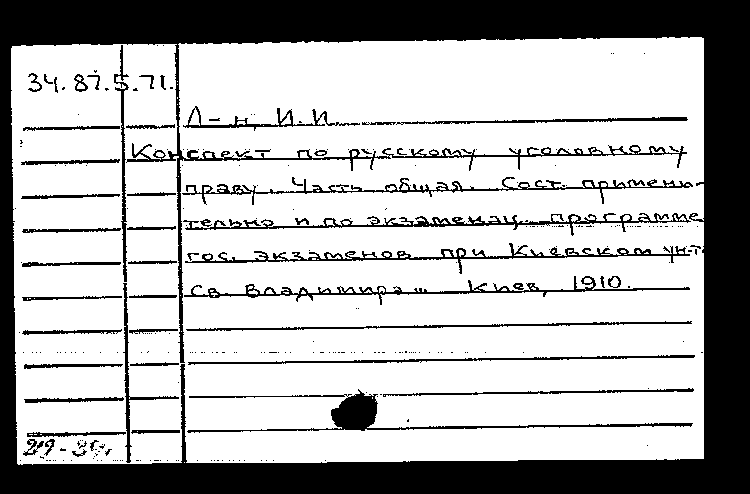 34.87.5.71.
Л-н, И.И.
Конспект по русскому уголовному
праву. Часть общая. Сост. примени-
тельно и по экзаменац. программе
гос. экзаменов при Киевском ун-те
Св. Владимира... Киев, 1910.